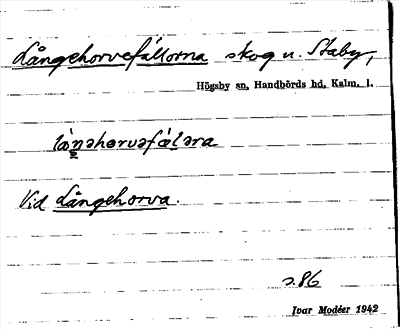 Långehorvefällorna skog u. Staby,
Högsby sn, Handbörds hd, Kalm. l.
Vid Långehorva.
s. 86
Ivar Modéer 1942